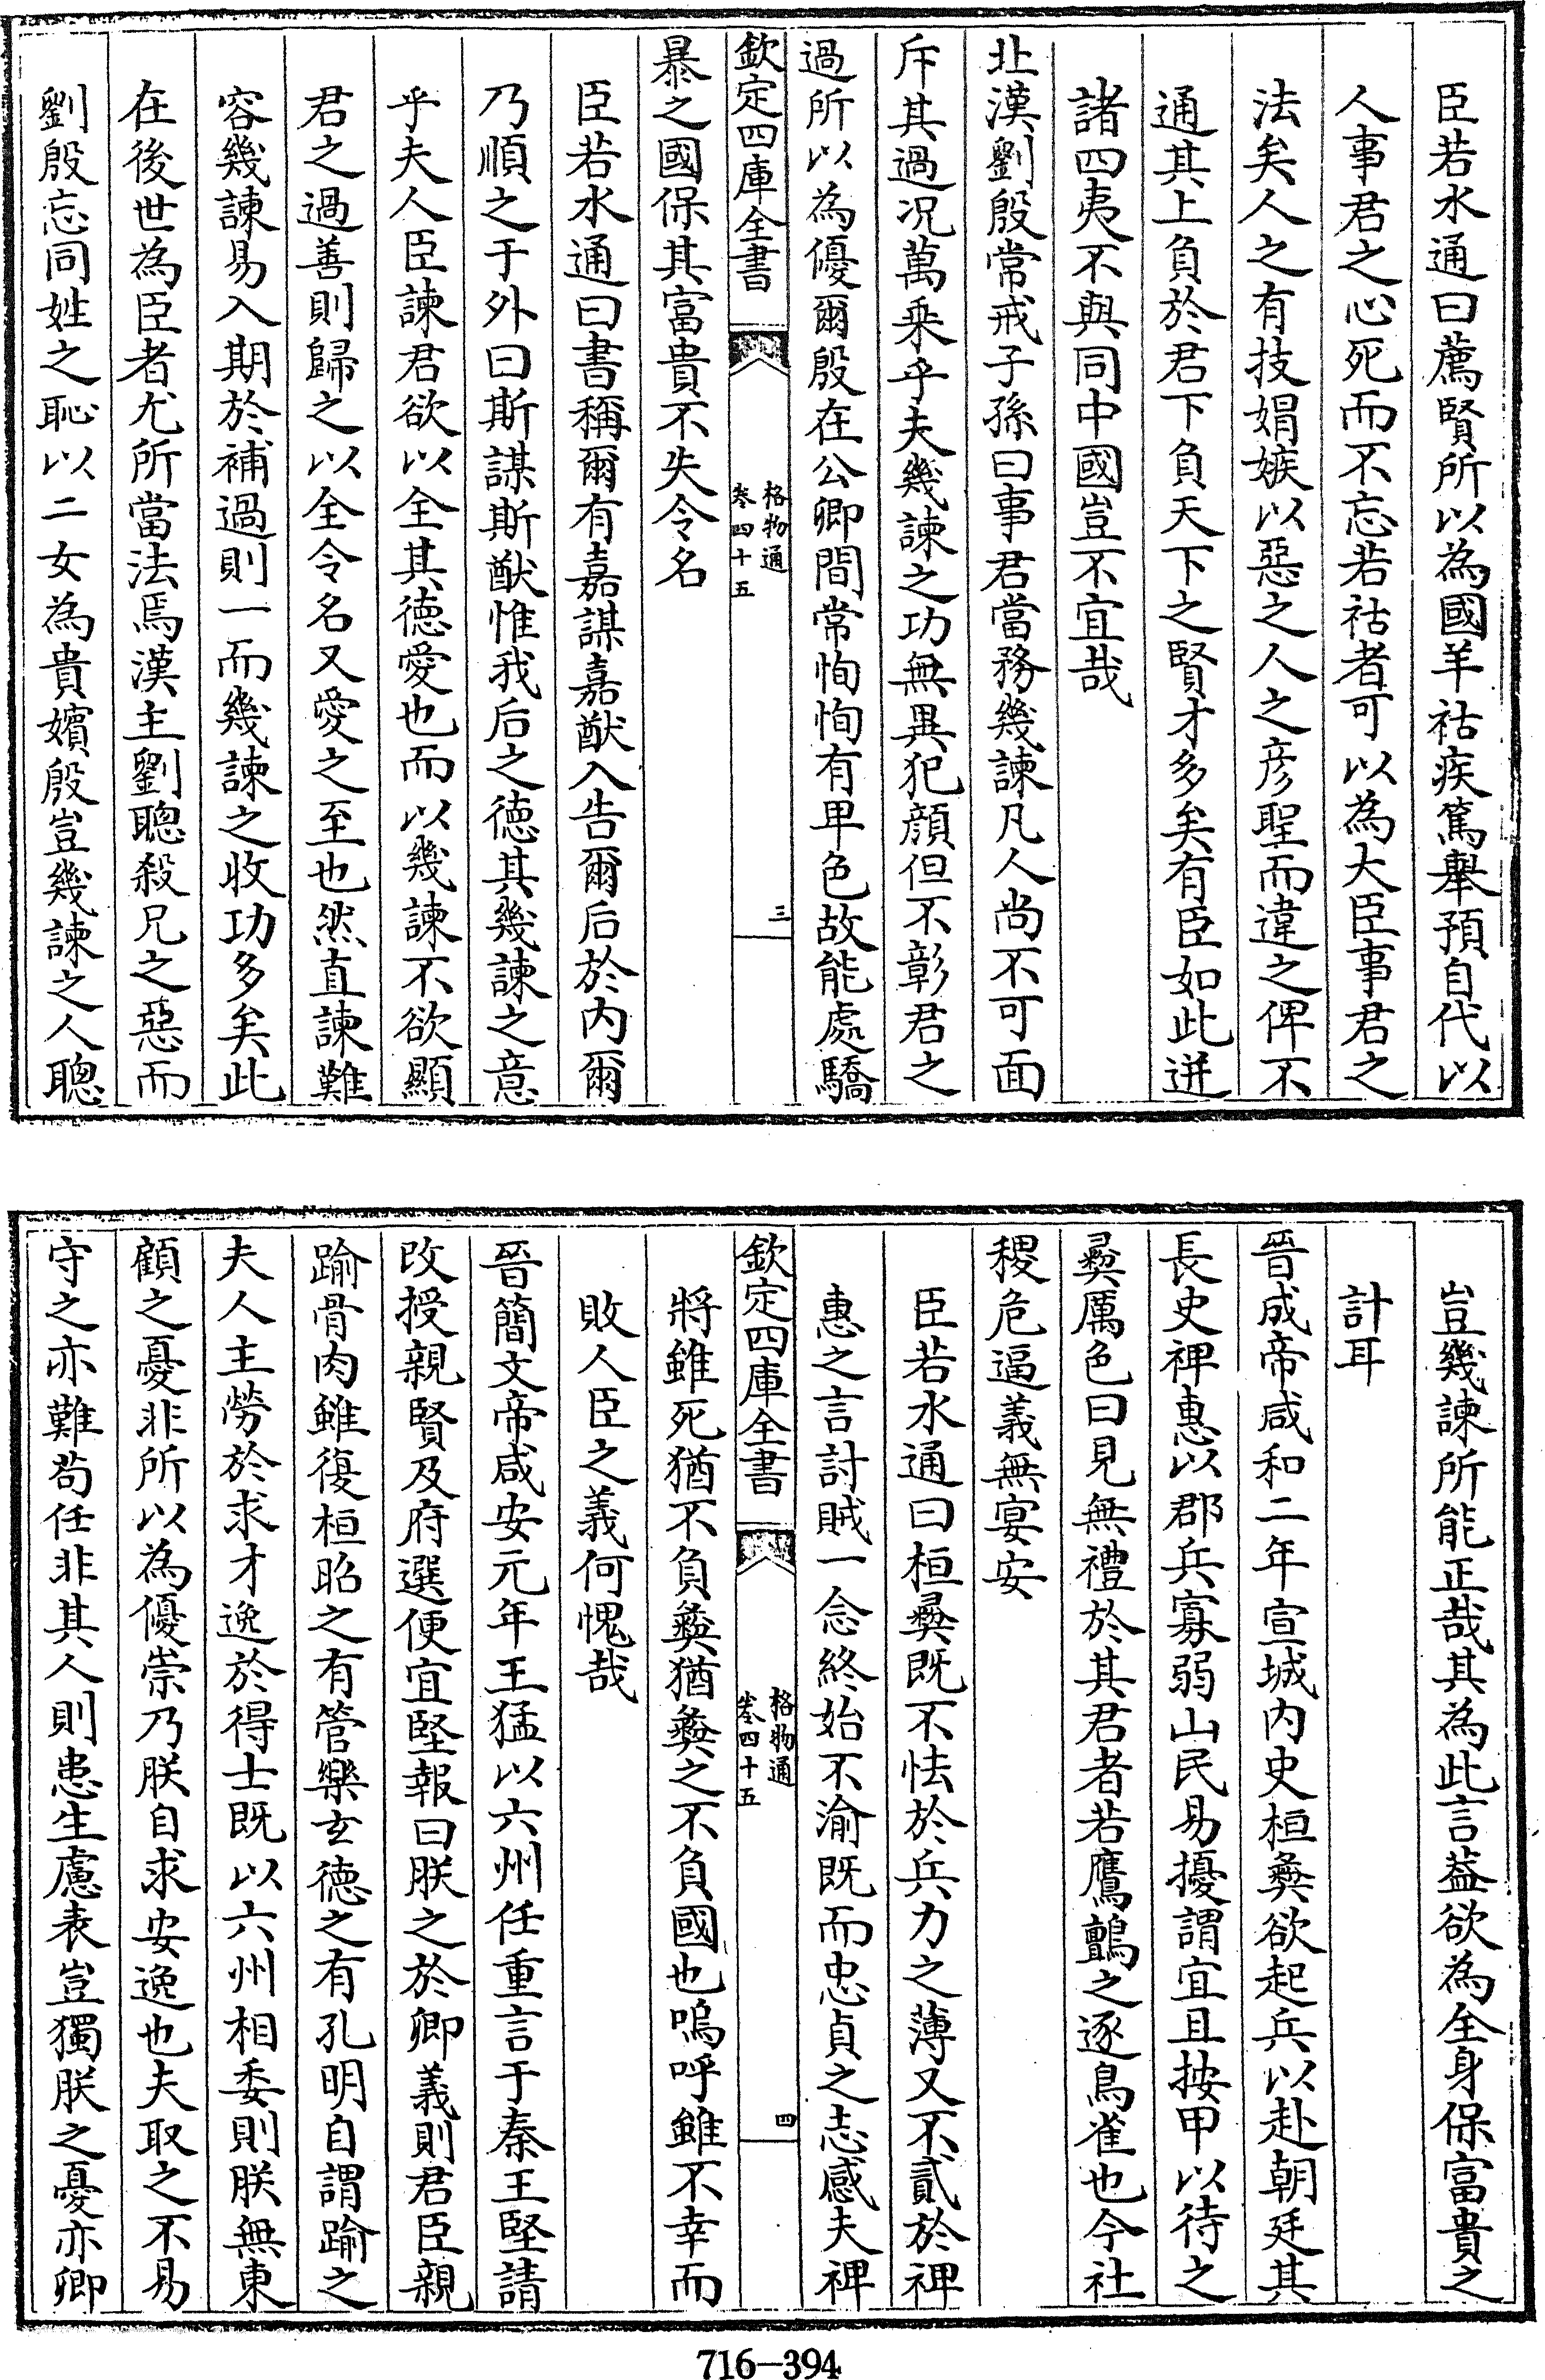 臣若水通曰薦賢所以為國羊祜疾篤舉預自代以
人事君之心死而不忘若祜者可以為大臣事君之
法矣人之有技娼嫉以惡之人之彦聖而違之俾不
通其上負於君下負天下之賢才多矣有臣如此迸
諸四夷不與同中國豈不宜哉
北漢劉殷常戒子孫曰事君當務幾諫凡人尚不可面
斥其過况萬乘乎夫幾諫之功無異犯顔但不彰君之
過所以為優爾殷在公卿間常恂恂有卑色故能處驕
欽定四庫全書
格物通
卷四十五
三
暴之國保其富貴不失令名
臣若水通曰書稱爾有嘉謀嘉猷入告爾后於内爾
乃順之于外曰斯謀斯猷惟我后之德其幾諫之意
乎夫人臣諫君欲以全其德愛也而以幾諫不欲顯
君之過善則歸之以全令名又愛之至也然直諫難
容幾諫易入期於補過則一而幾諫之收功多矣此
在後世為臣者尤所當法焉漢主劉聰殺兄之惡而
劉殷忘同姓之恥以二女為貴嬪殷豈幾諫之人聰
豈幾諫所能正哉其為此言葢欲為全身保富貴之
計耳
晉成帝咸和二年宣城内史桓彞欲起兵以赴朝廷其
長史裨惠以郡兵寡弱山民易擾謂宜且按甲以待之
彞厲色曰見無禮於其君者若鷹鸇之逐鳥雀也今社
稷危逼義無宴安
臣若水通曰桓彞既不怯於兵力之薄又不貳於裨
惠之言討賊一念終始不渝既而忠貞之志感夫裨
欽定四庫全書
格物通
卷四十五
四
將雖死猶不負彞猶彞之不負國也嗚呼雖不幸而
敗人臣之義何愧哉
晉簡文帝咸安元年王猛以六州任重言于秦王堅請
改授親賢及府選便宜堅報曰朕之於卿義則君臣親
踰骨肉雖復桓昭之有管樂玄德之有孔明自謂踰之
夫人主勞於求才逸於得士既以六州相委則朕無東
顧之憂非所以為優崇乃朕自求安逸也夫取之不易
守之亦難苟任非其人則患生慮表豈獨朕之憂亦卿
716-394